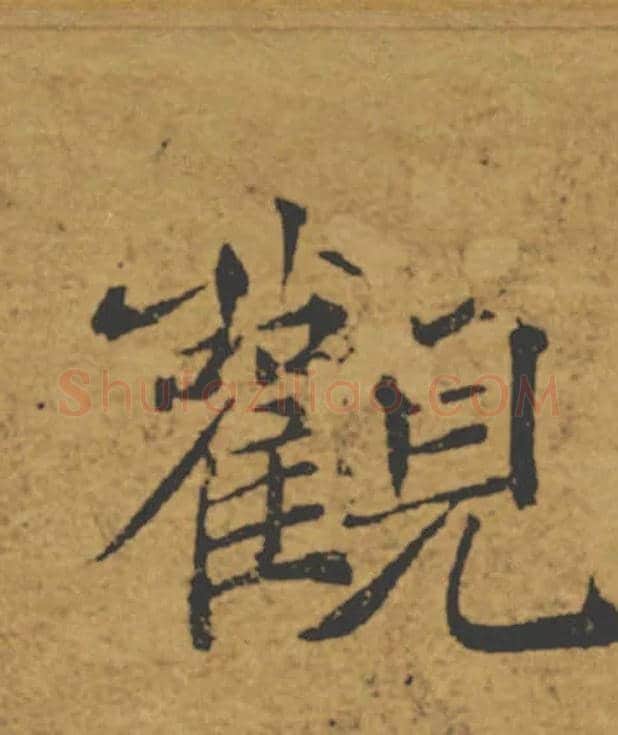 觀
Shufaziliao.COM